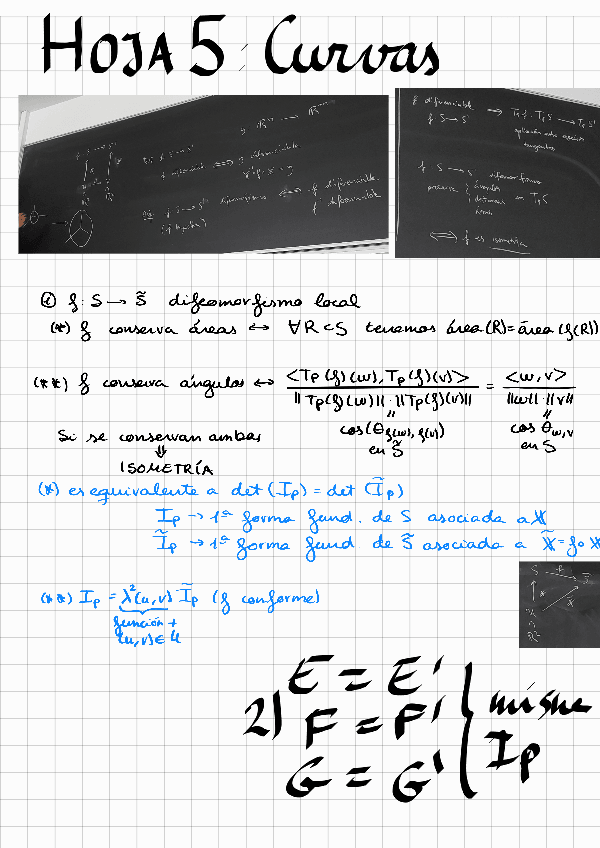 HOJA 5: Curvas
f diferenciable ⟹ Tpf: TpS → TpS'
f: S → S'
aplicación
tangentes
f: S → S' difeomorfismo
preserva { ángulos
distancias
áreas
en TpS
⟺ f es isometría
① f: S → S̃ difeomorfismo local
(*) f conserva áreas ↔ ∀R ⊂ S tenemos área(R) = área(f(R))
(**) f conserva ángulos ↔ <Tp(f)(w), Tp(f)(v)> / ||Tp(f)(w)|| · ||Tp(f)(v)|| = <w, v> / ||w|| · ||v||
= =
cos(θ f(w), f(v)) cos θ w,v
en S̃ en S
Si se conservan ambos
⇓
ISOMETRÍA
(*) es equivalente a det(Ip) = det(Ĩp)
Ip → 1ª forma fund. de S asociada a X
Ĩp → 1ª forma fund de S̃ asociada a X̃ = f∘X
(**) Ip = λ²(u,v) · Ĩp (f conforme)
función +
(u,v) ∈ U
2) E = E'
F = F'
G = G'
} misma
Ip